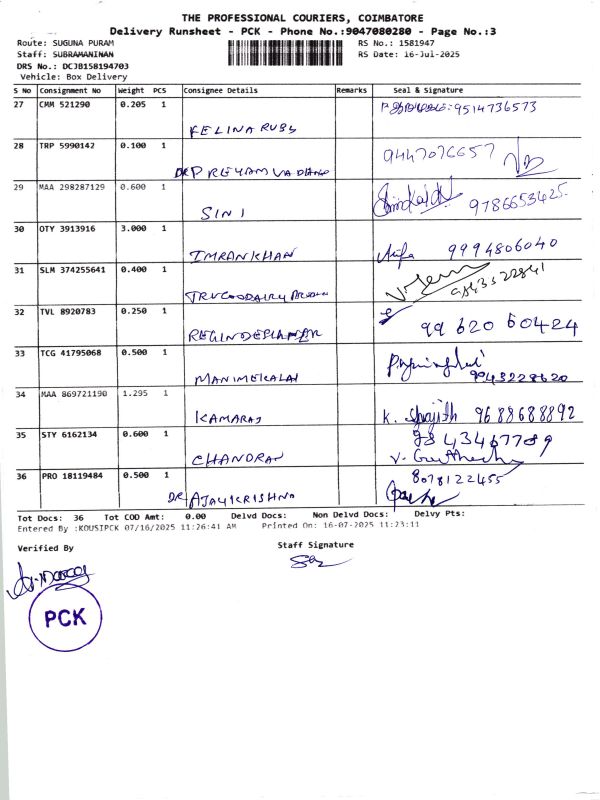 THE PROFESSIONAL COURIERS, COIMBATORE
Delivery Runsheet - PCK - Phone No.:9047080280 - Page No.:3
Route: SUGUNA PURAM RS No.: 1581947
Staff: SUBRAMANINAN RS Date: 16-Jul-2025
DRS No.: DCJB158194703
Vehicle: Box Delivery
S No Consignment No Weight PCS Consignee Details Remarks Seal & Signature
27 CMM 521290 0.205 1 9514736573
KELINA RUBY
28 TRP 5990142 0.100 1 9447076657
DR PREYAM VADHANA
29 MAA 298287129 0.600 1 9786653425
SINI
30 OTY 3913916 3.000 1
IMRAN KHAN 9994806040
31 SLM 374255641 0.400 1
32 TVL 8920783 0.250 1 99 620 60424
33 TCG 41795068 0.500 1
MANIMEKALAI 9943228620
34 MAA 869721190 1.295 1
KAMARAJ K. 9688688892
35 STY 6162134 0.600 1 9843467789
CHANDRAN
36 PRO 18119484 0.500 1 8078122455
DR AJAYKRISHNO
Tot Docs: 36 Tot COD Amt: 0.00 Delvd Docs: Non Delvd Docs: Delvy Pts:
Entered By :KOUSIPCK 07/16/2025 11:26:41 AM Printed On: 16-07-2025 11:23:11
Verified By Staff Signature
PCK